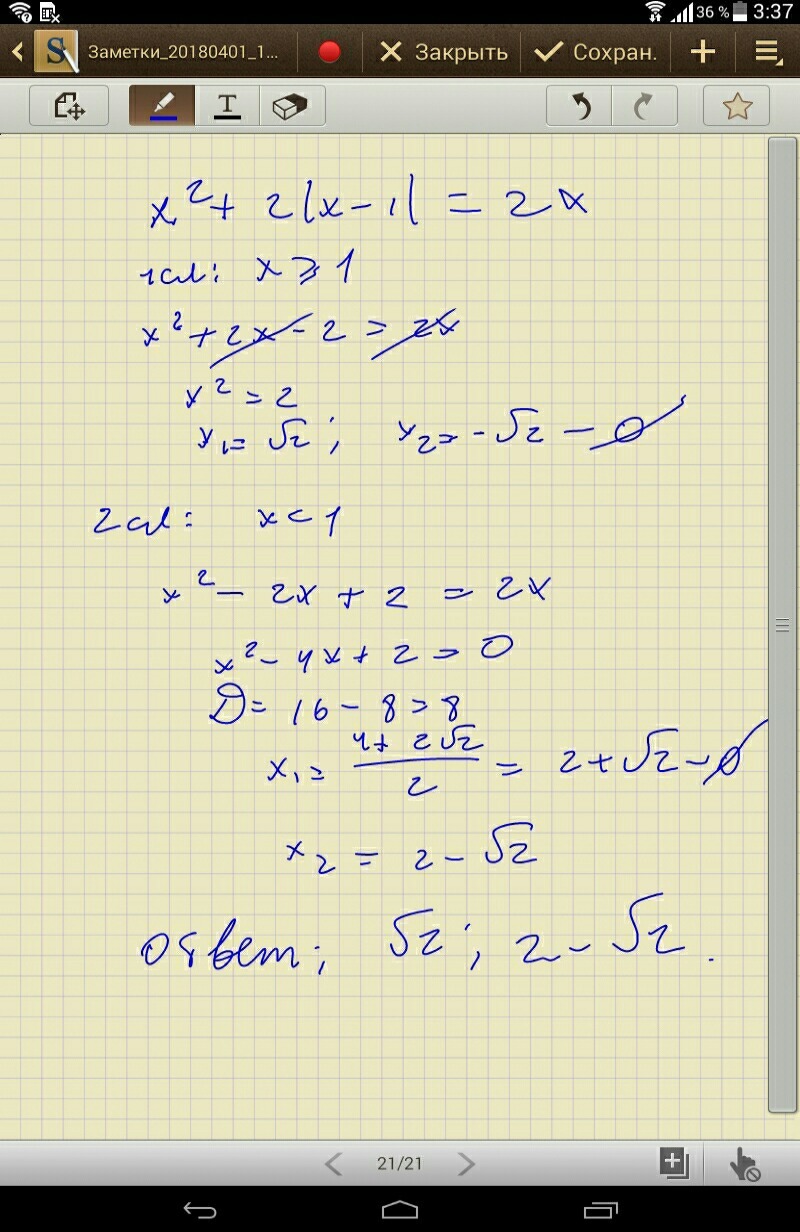 36 % 3:37
Заметки_20180401_1... Закрыть Сохран.
T
x² + 2|x - 1| = 2x
1сл: x ⩾ 1
x² + 2x - 2 = 2x
x² = 2
x₁ = √2 ; x₂ = -√2 - ∅
2сл: x < 1
x² - 2x + 2 = 2x
x² - 4x + 2 = 0
D = 16 - 8 = 8
x₁ = (4 + 2√2)/2 = 2 + √2 - ∅
x₂ = 2 - √2
ответ; √2 ; 2 - √2 .
21/21